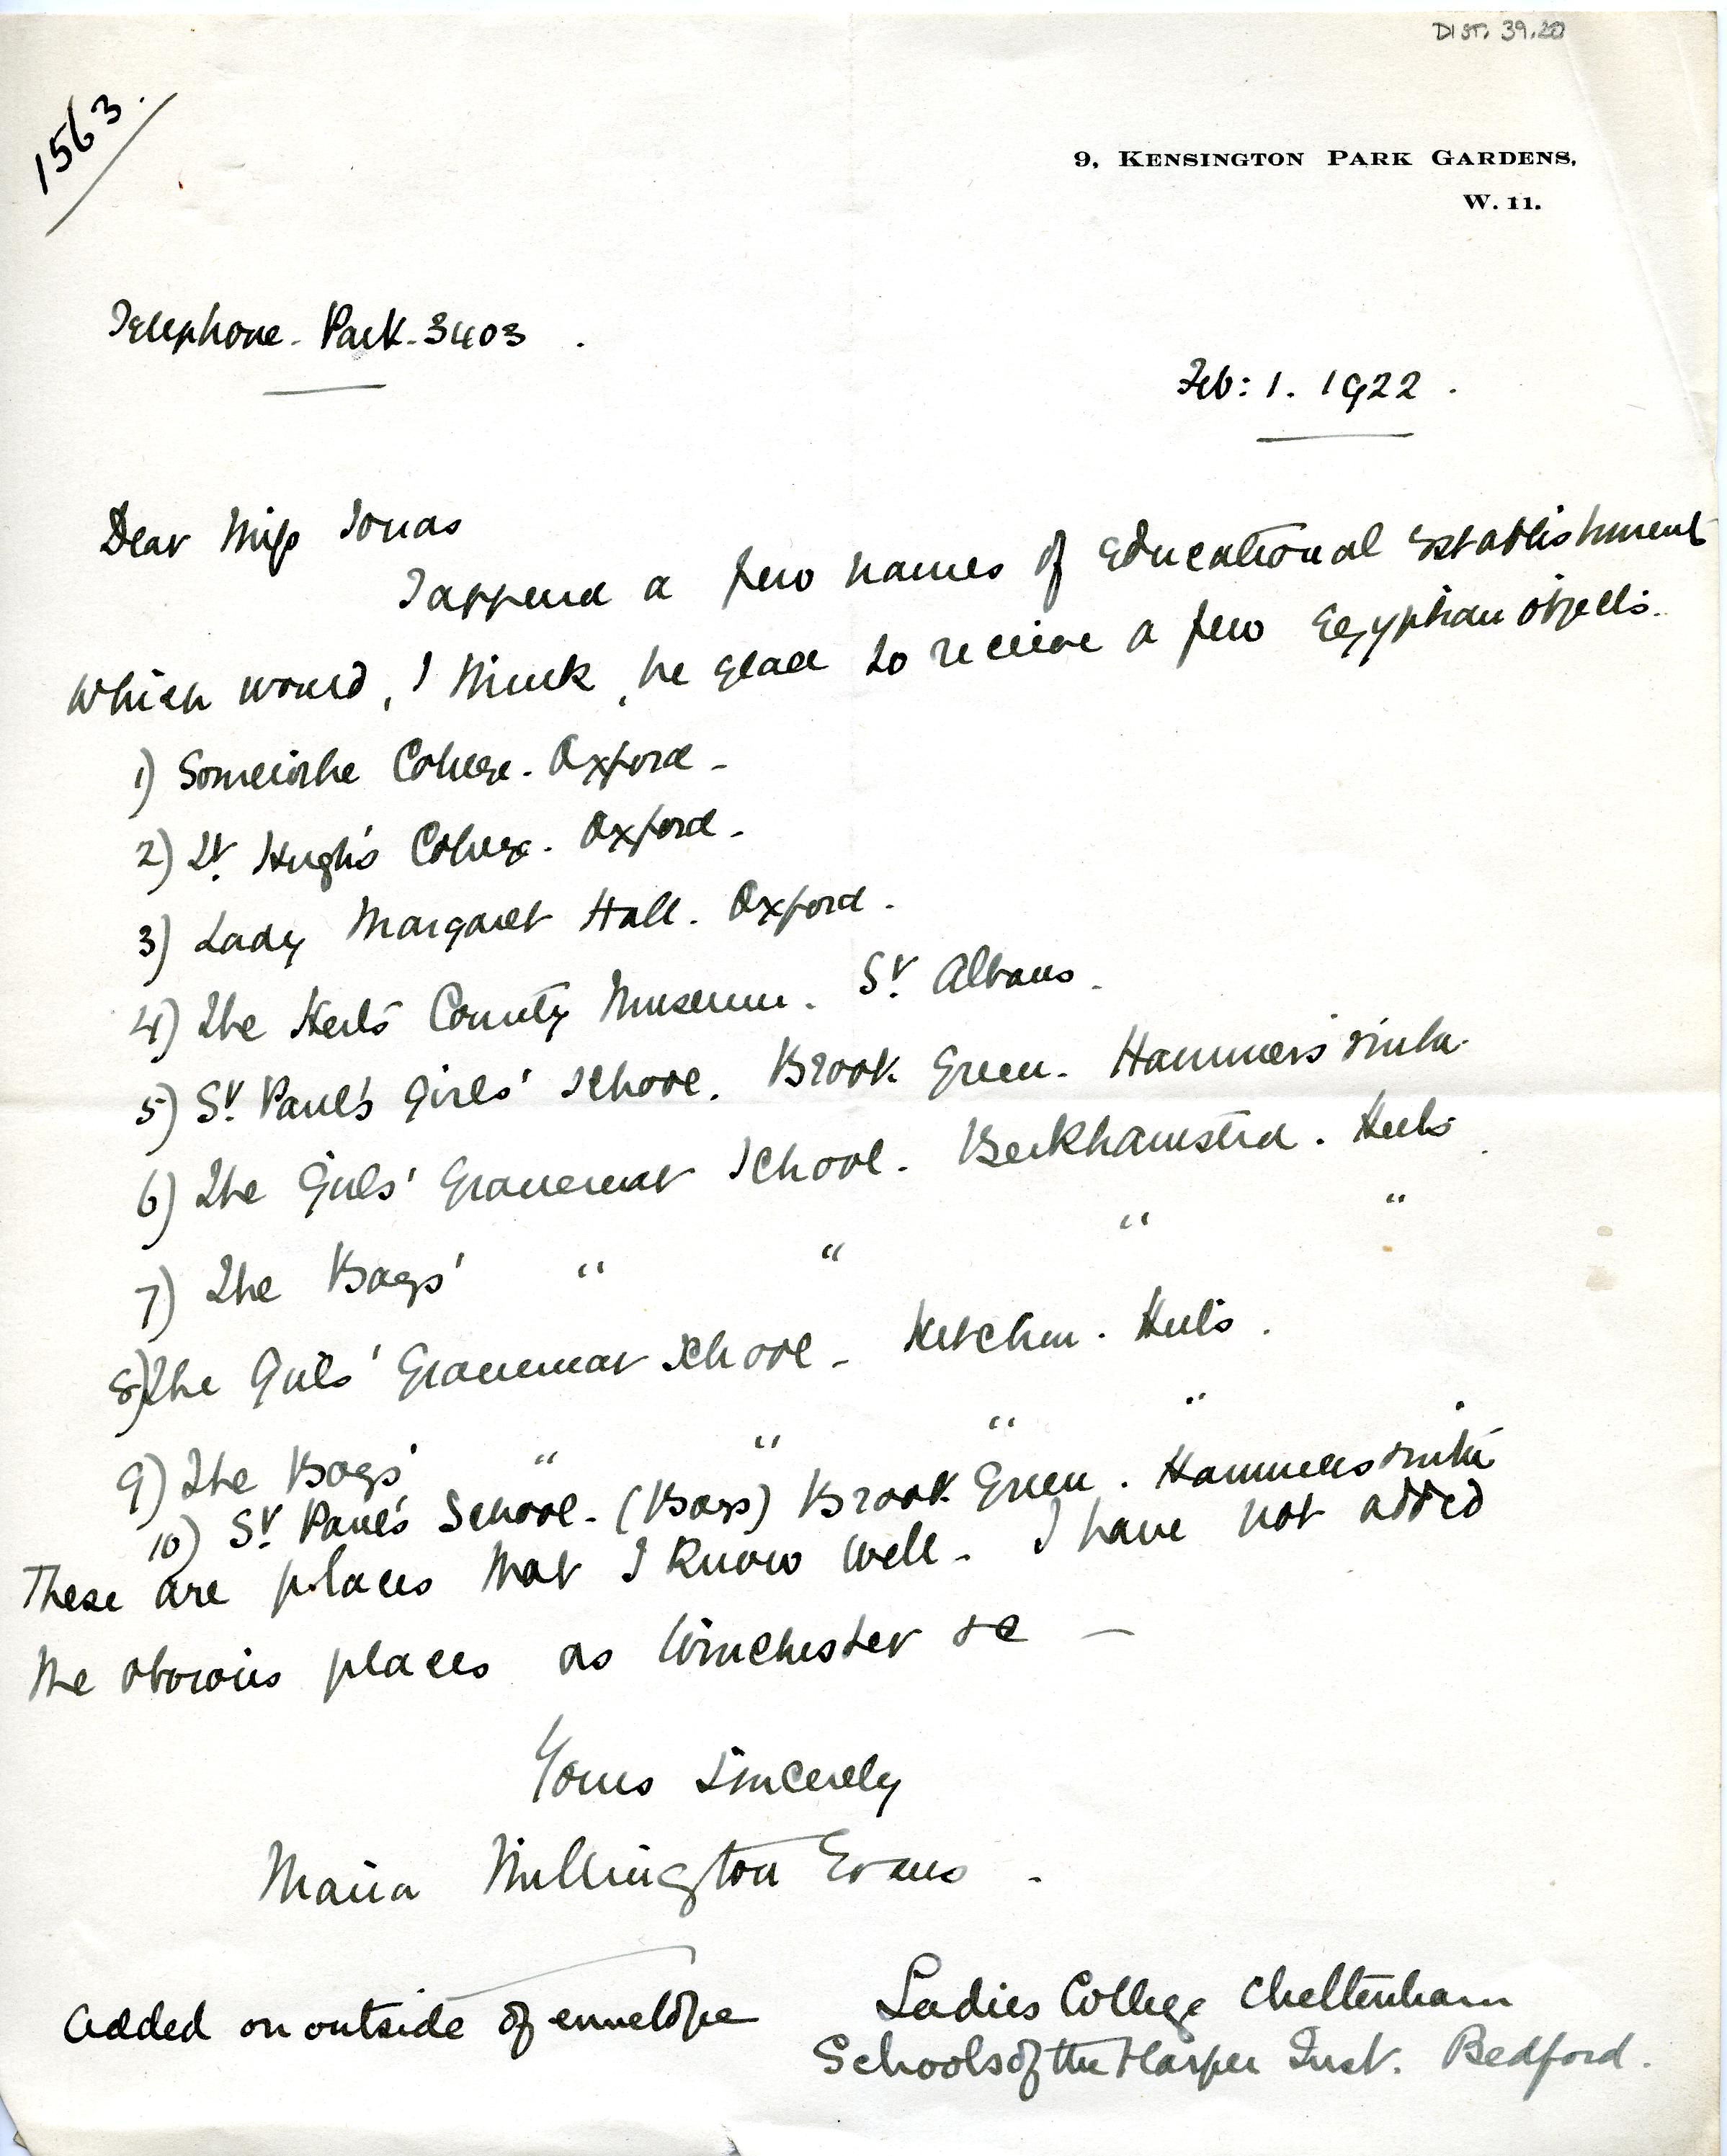 DIST. 39.20
1563.
9, KENSINGTON PARK GARDENS,
W. 11.
Telephone - Park - 3403.
Feb: 1. 1922.
Dear Miss Jonas
I append a few names of Educational Establishments
which would, I think, be glad to receive a few Egyptian objects.
1) Somerville College. Oxford -
2) St Hugh's College. Oxford -
3) Lady Margaret Hall. Oxford.
4) The Herts County Museum. St Albans.
5) St Paul's Girls' School. Brook Green. Hammersmith.
6) The Girls' Grammar School. Berkhamsted. Herts.
7) The Boys' " " " "
8) The Girls' Grammar School - Hitchin. Herts.
9) The Boys' " " " "
10) St Paul's School - (Boys) Brook Green. Hammersmith
These are places that I know well. I have not added
the obvious places as Winchester &c -
Yours sincerely
Maria Millington Evans.
Added on outside of envelope
Ladies College Cheltenham
Schools of the Harper Inst. Bedford.